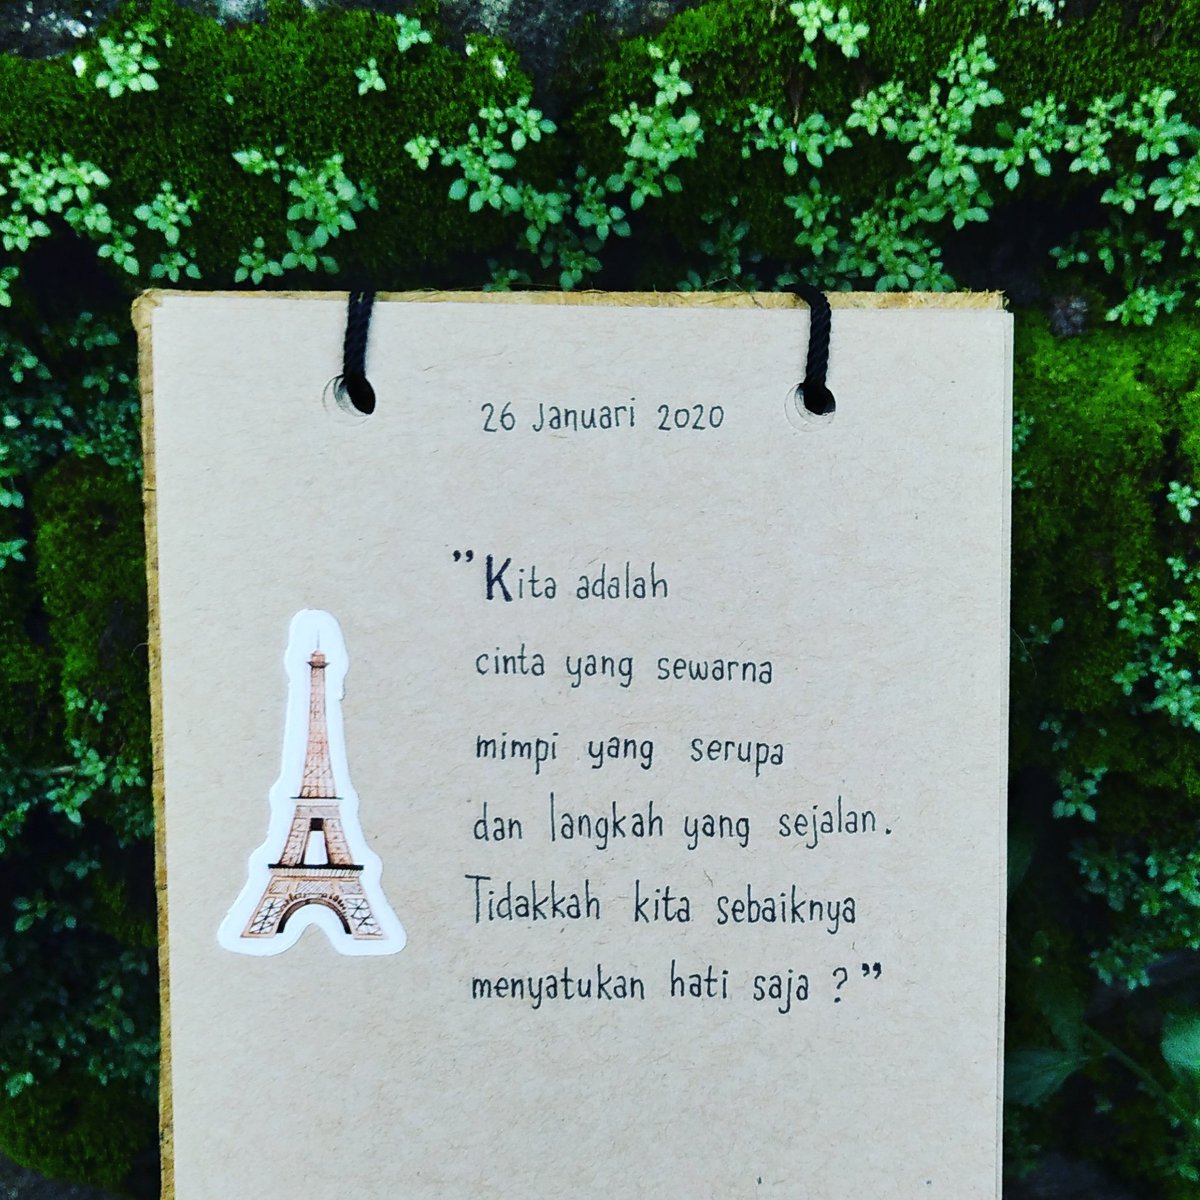 26 Januari 2020
”Kita adalah
cinta yang sewarna
mimpi yang serupa
dan langkah yang sejalan.
Tidakkah kita sebaiknya
menyatukan hati saja ?”